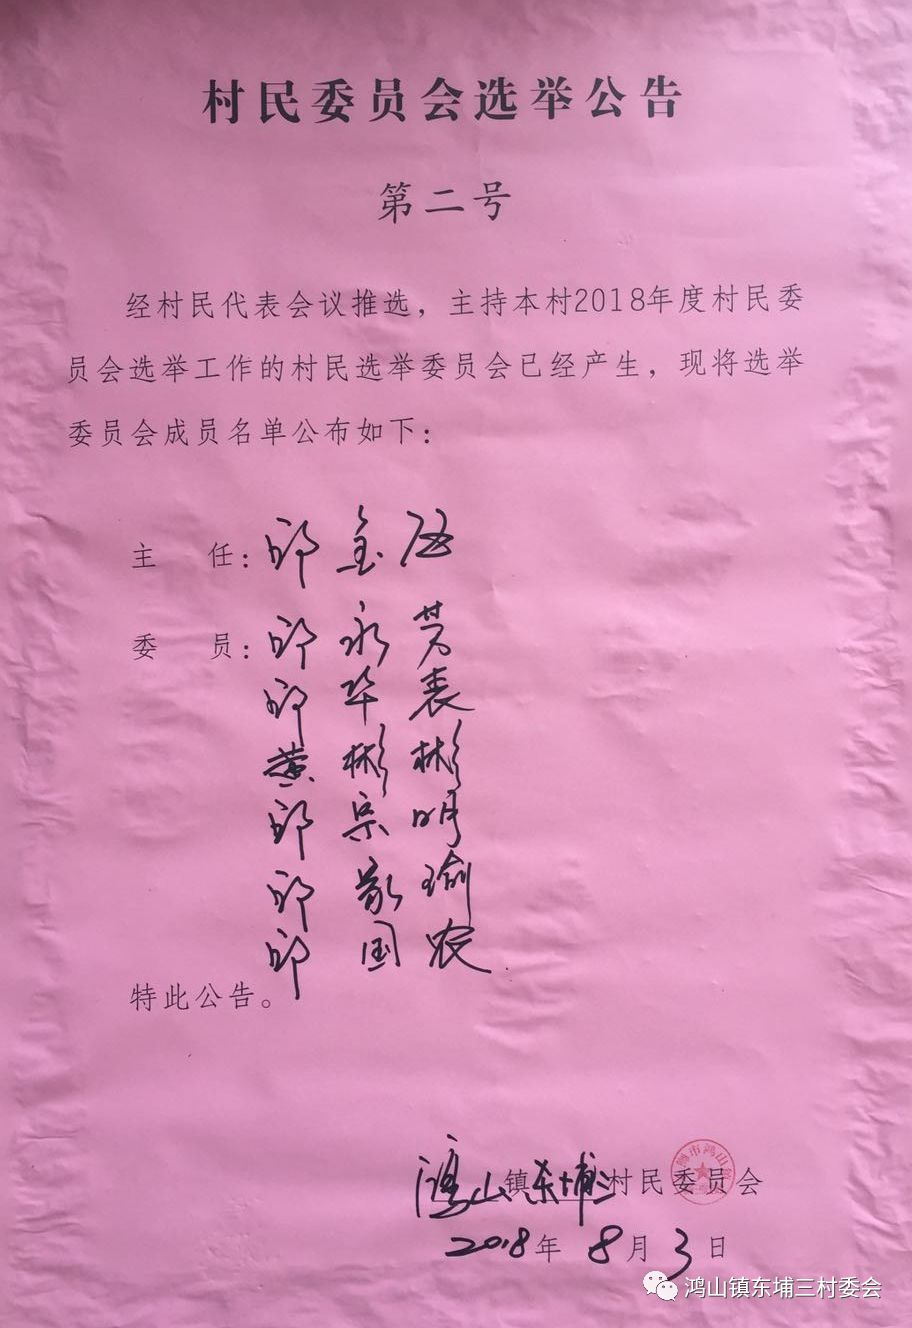 村民委员会选举公告
第二号
经村民代表会议推选，主持本村2018年度村民委
员会选举工作的村民选举委员会已经产生，现将选举
委员会成员名单公布如下：
主 任：邱金
委 员：邱永芳
邱华表
黄彬彬
邱宗明
邱 瑜
邱国农
特此公告。
鸿山镇东埔三村民委员会
2018年8月3日
市鸿山
鸿山镇东埔三村委会